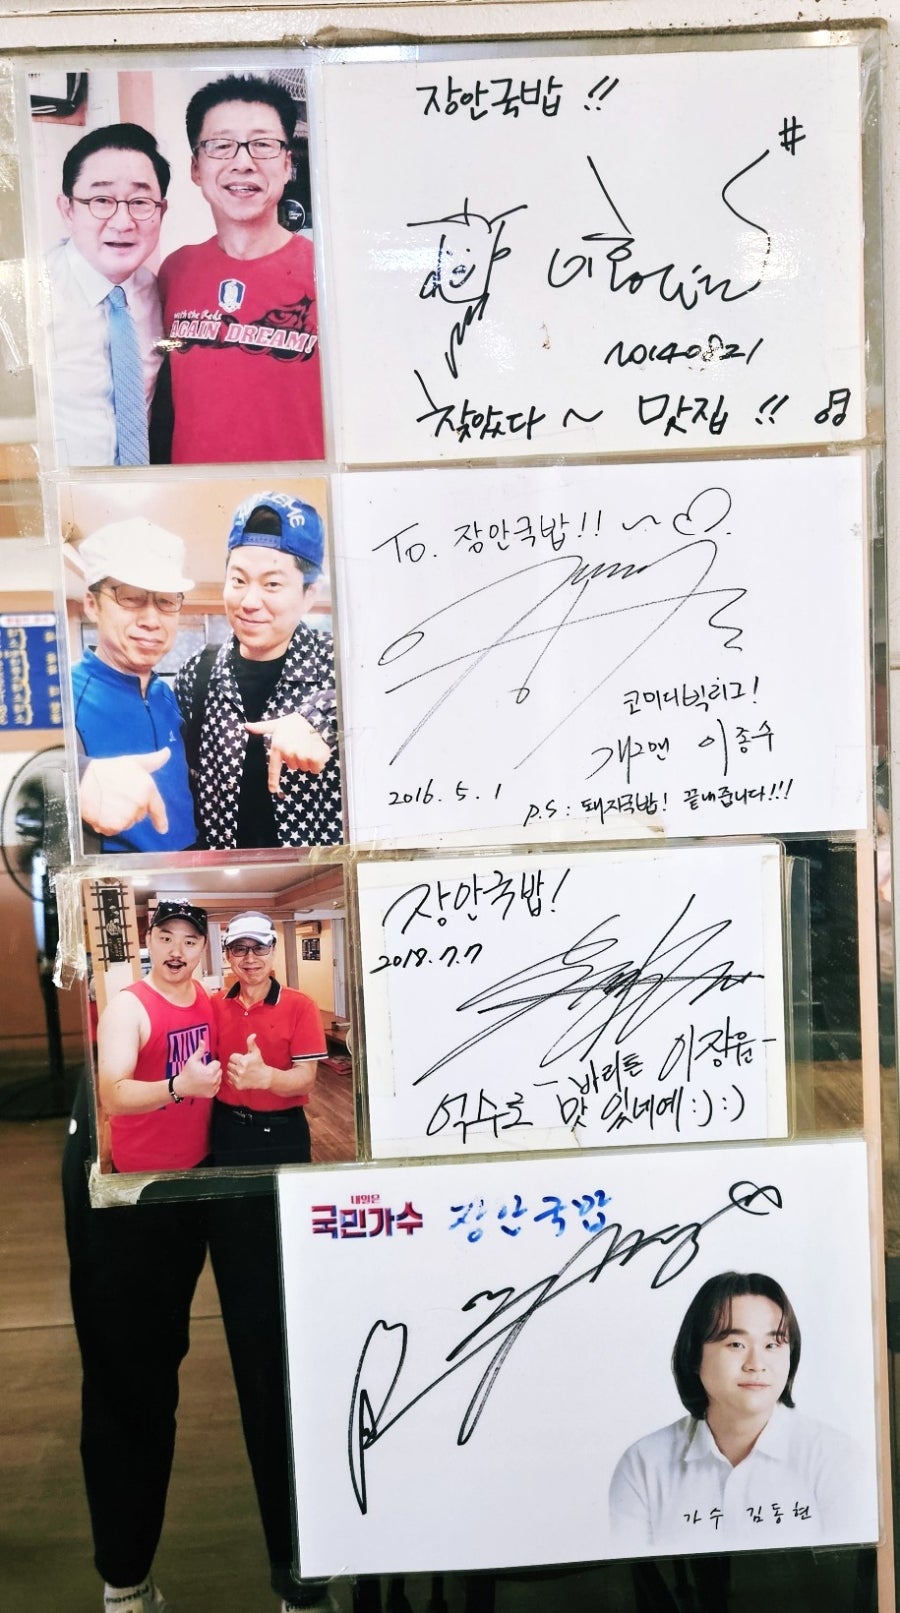 장안국밥!!
#
20140821
찾았다~ 맛집!!
with the Reds
AGAIN DREAM!
To. 장안국밥!!~♡.
코미디빅리그!
개그맨 이종수
2016. 5. 1
P.S : 돼지국밥! 끝내줍니다!!!
장안국밥!
2018.7.7
-바리톤 이장원-
억수로 맛있네예:):)
내일은
국민가수
장안국밥
가수 김동현